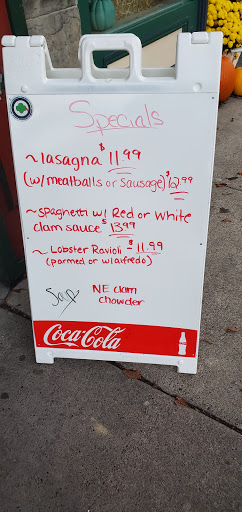 Specials
~lasagna $11.99
(w/ meatballs or sausage) $12.99
~spaghetti w/ Red or White
clam sauce $13.99
~ Lobster Ravioli - $11.99
(parmed or w/alfredo)
Soup NE clam
chowder
Coca-Cola